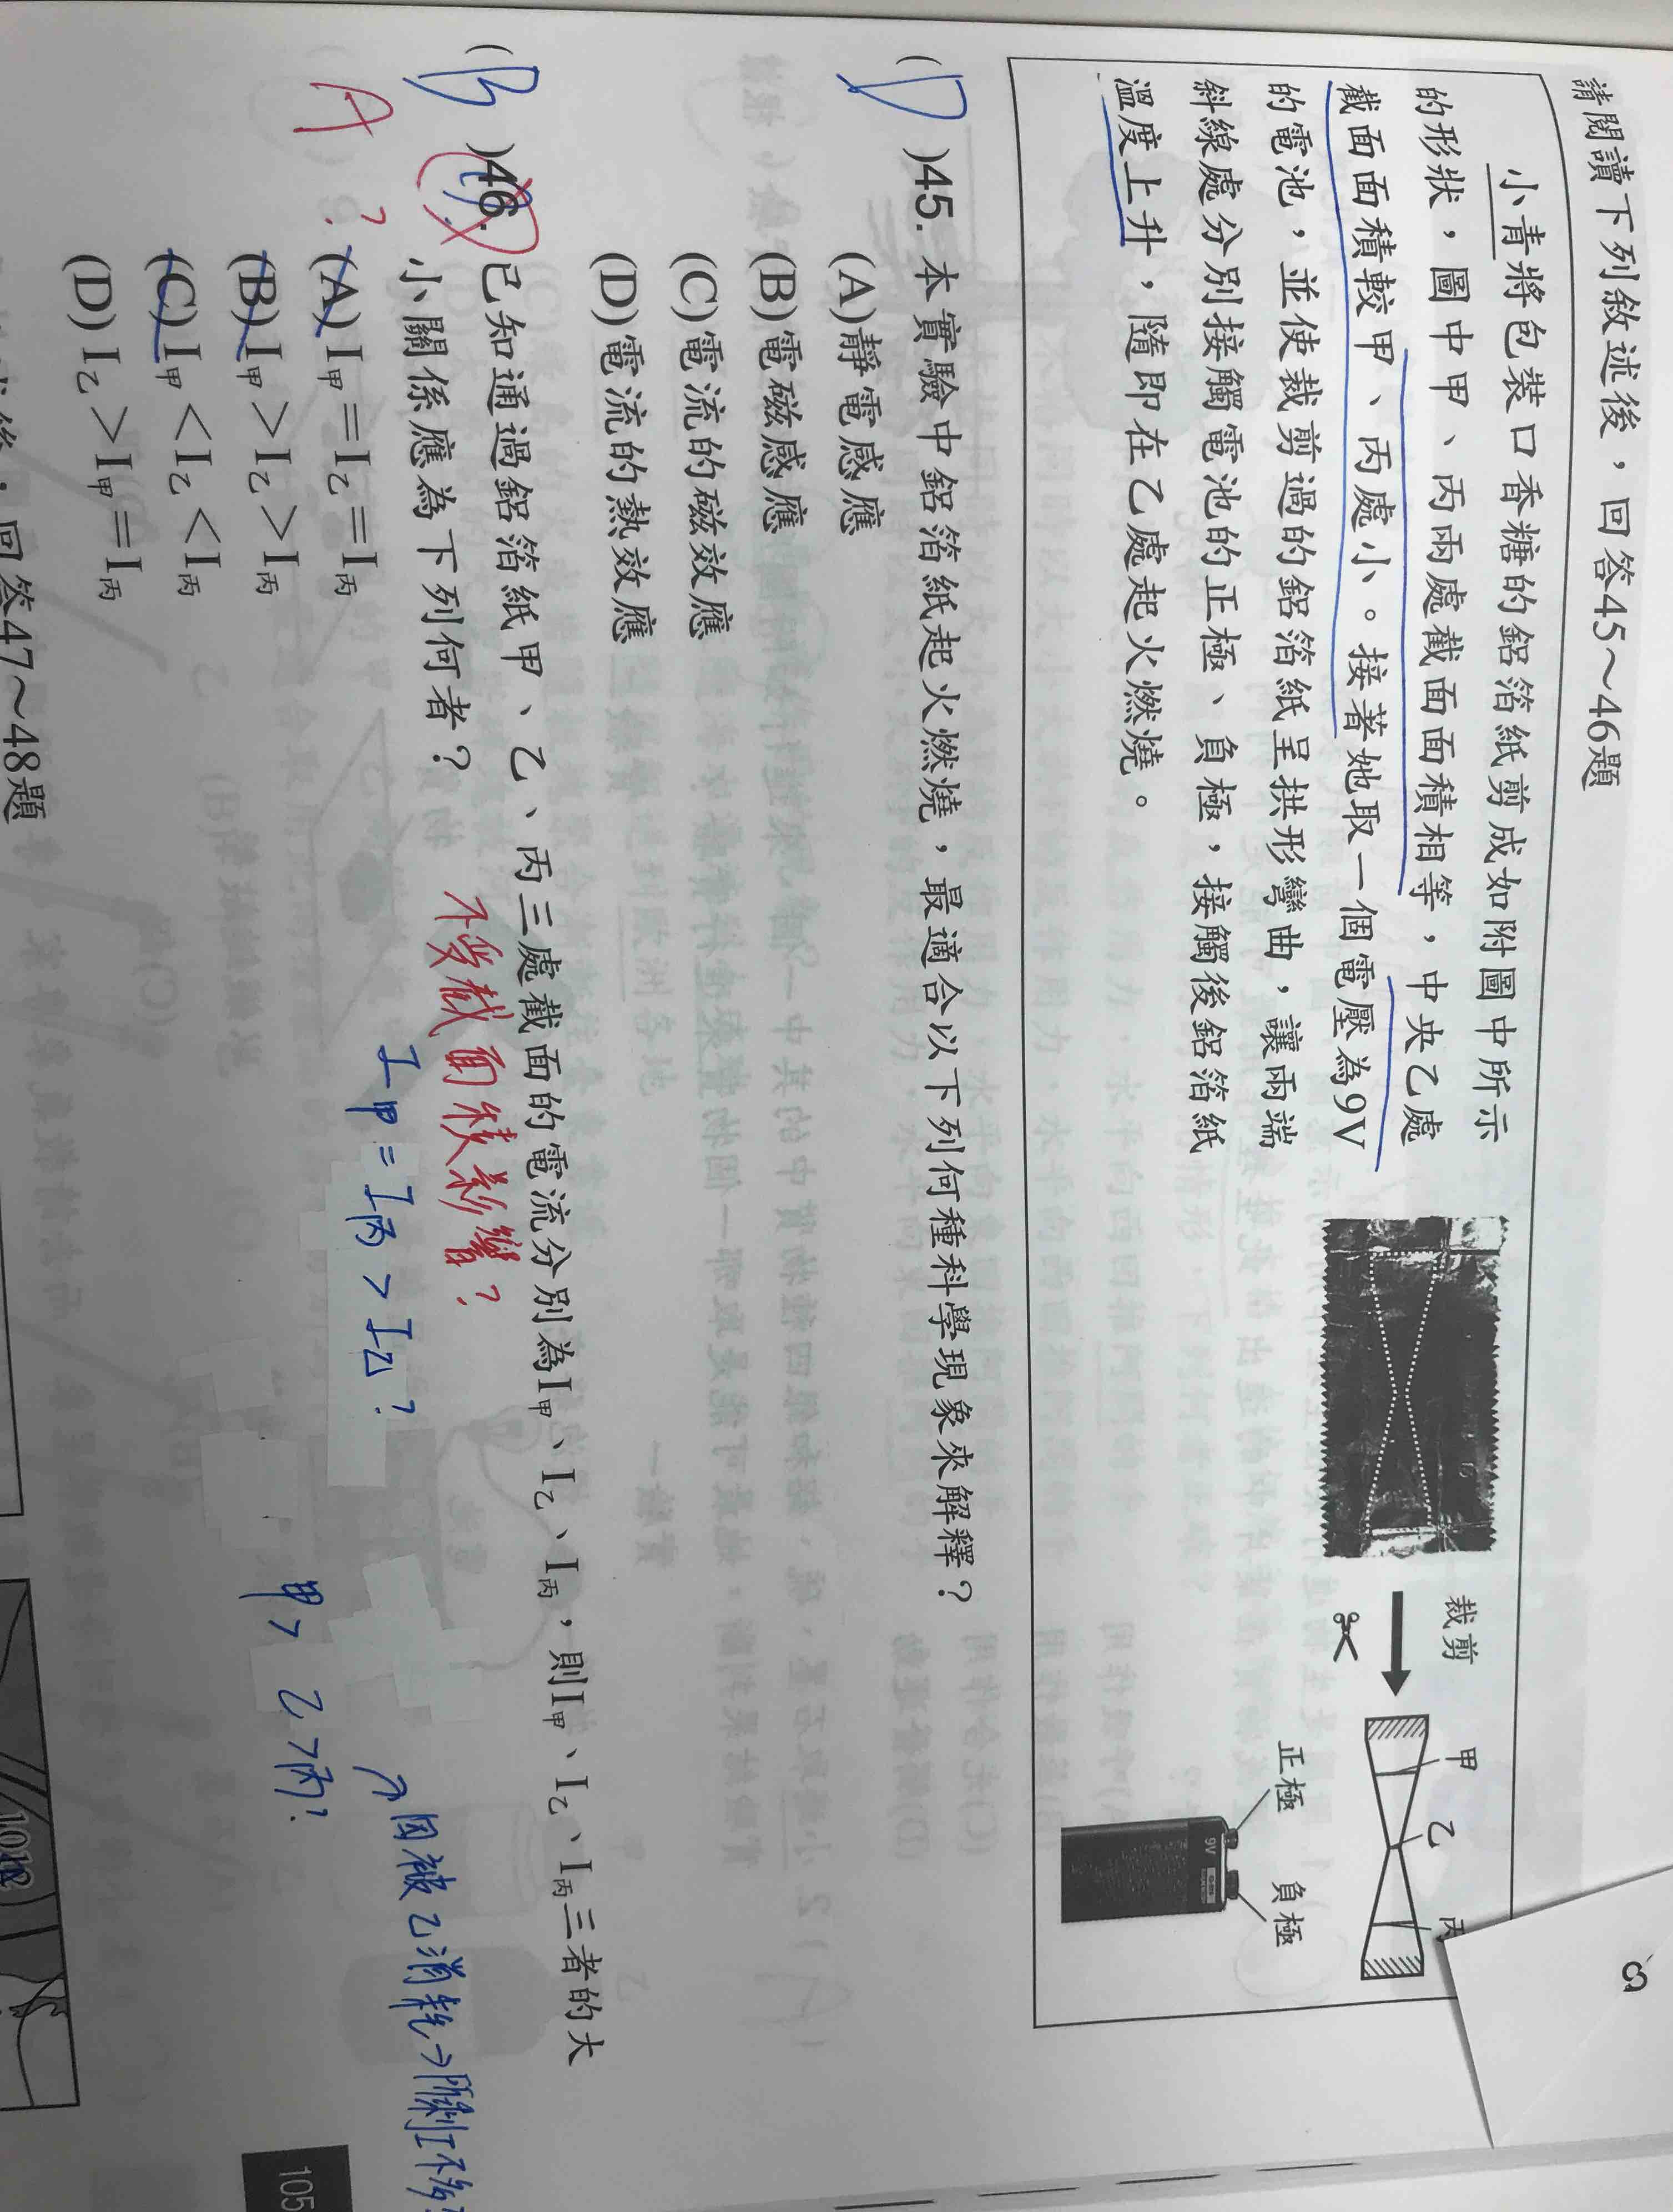 請閱讀下列敘述後，回答45～46題
小青將包裝口香糖的鋁箔紙剪成如附圖中所示
的形狀，圖中甲、丙兩處截面面積相等，中央乙處
截面面積較甲、丙處小。接著她取一個電壓為9V
的電池，並使裁剪過的鋁箔紙呈拱形彎曲，讓兩端
斜線處分別接觸電池的正極、負極，接觸後鋁箔紙
溫度上升，隨即在乙處起火燃燒。
裁剪
甲
乙
丙
正極
負極
9V
(D)45. 本實驗中鋁箔紙起火燃燒，最適合以下列何種科學現象來解釋？
(A)靜電感應
(B)電磁感應
(C)電流的磁效應
(D)電流的熱效應
(B)46. 已知通過鋁箔紙甲、乙、丙三處截面的電流分別為I甲、I乙、I丙，則I甲、I乙、I丙三者的大
小關係應為下列何者？
A
不受截面積影響？
?
(A)I甲＝I乙＝I丙
(B)I甲＞I乙＞I丙
(C)I甲＜I乙＜I丙
(D)I乙＞I甲＝I丙
I甲=I丙>I乙?
甲> 乙>丙?
→因被乙消耗→剩I不多?
回答47～48題
105
8